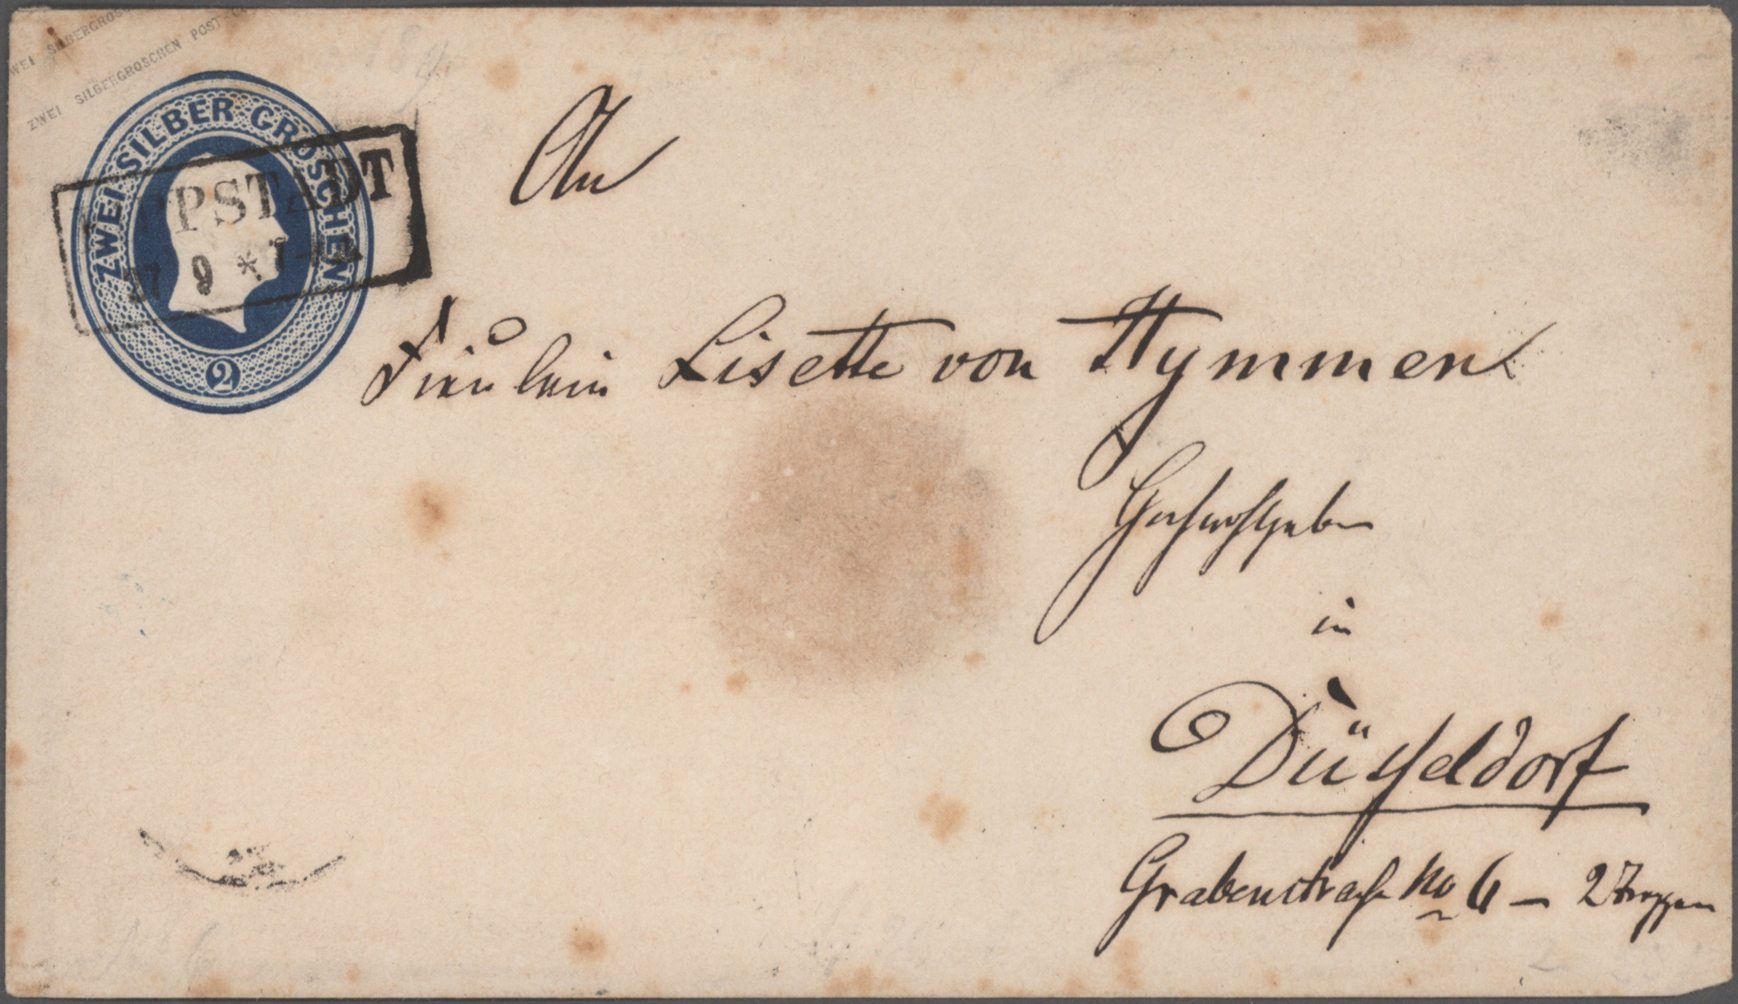 ZWEI SILBERGROSCHEN
ZWEI SILBERGROSCHEN POST-
ZWEI SILBER GROSCHEN
PPSTADT
27 9 * 7-
2
An
Fräulein Lisette von Hymmen
Hochwohlgeboren
in
Düsseldorf
Grabenstraße No 6 – 2 Treppen